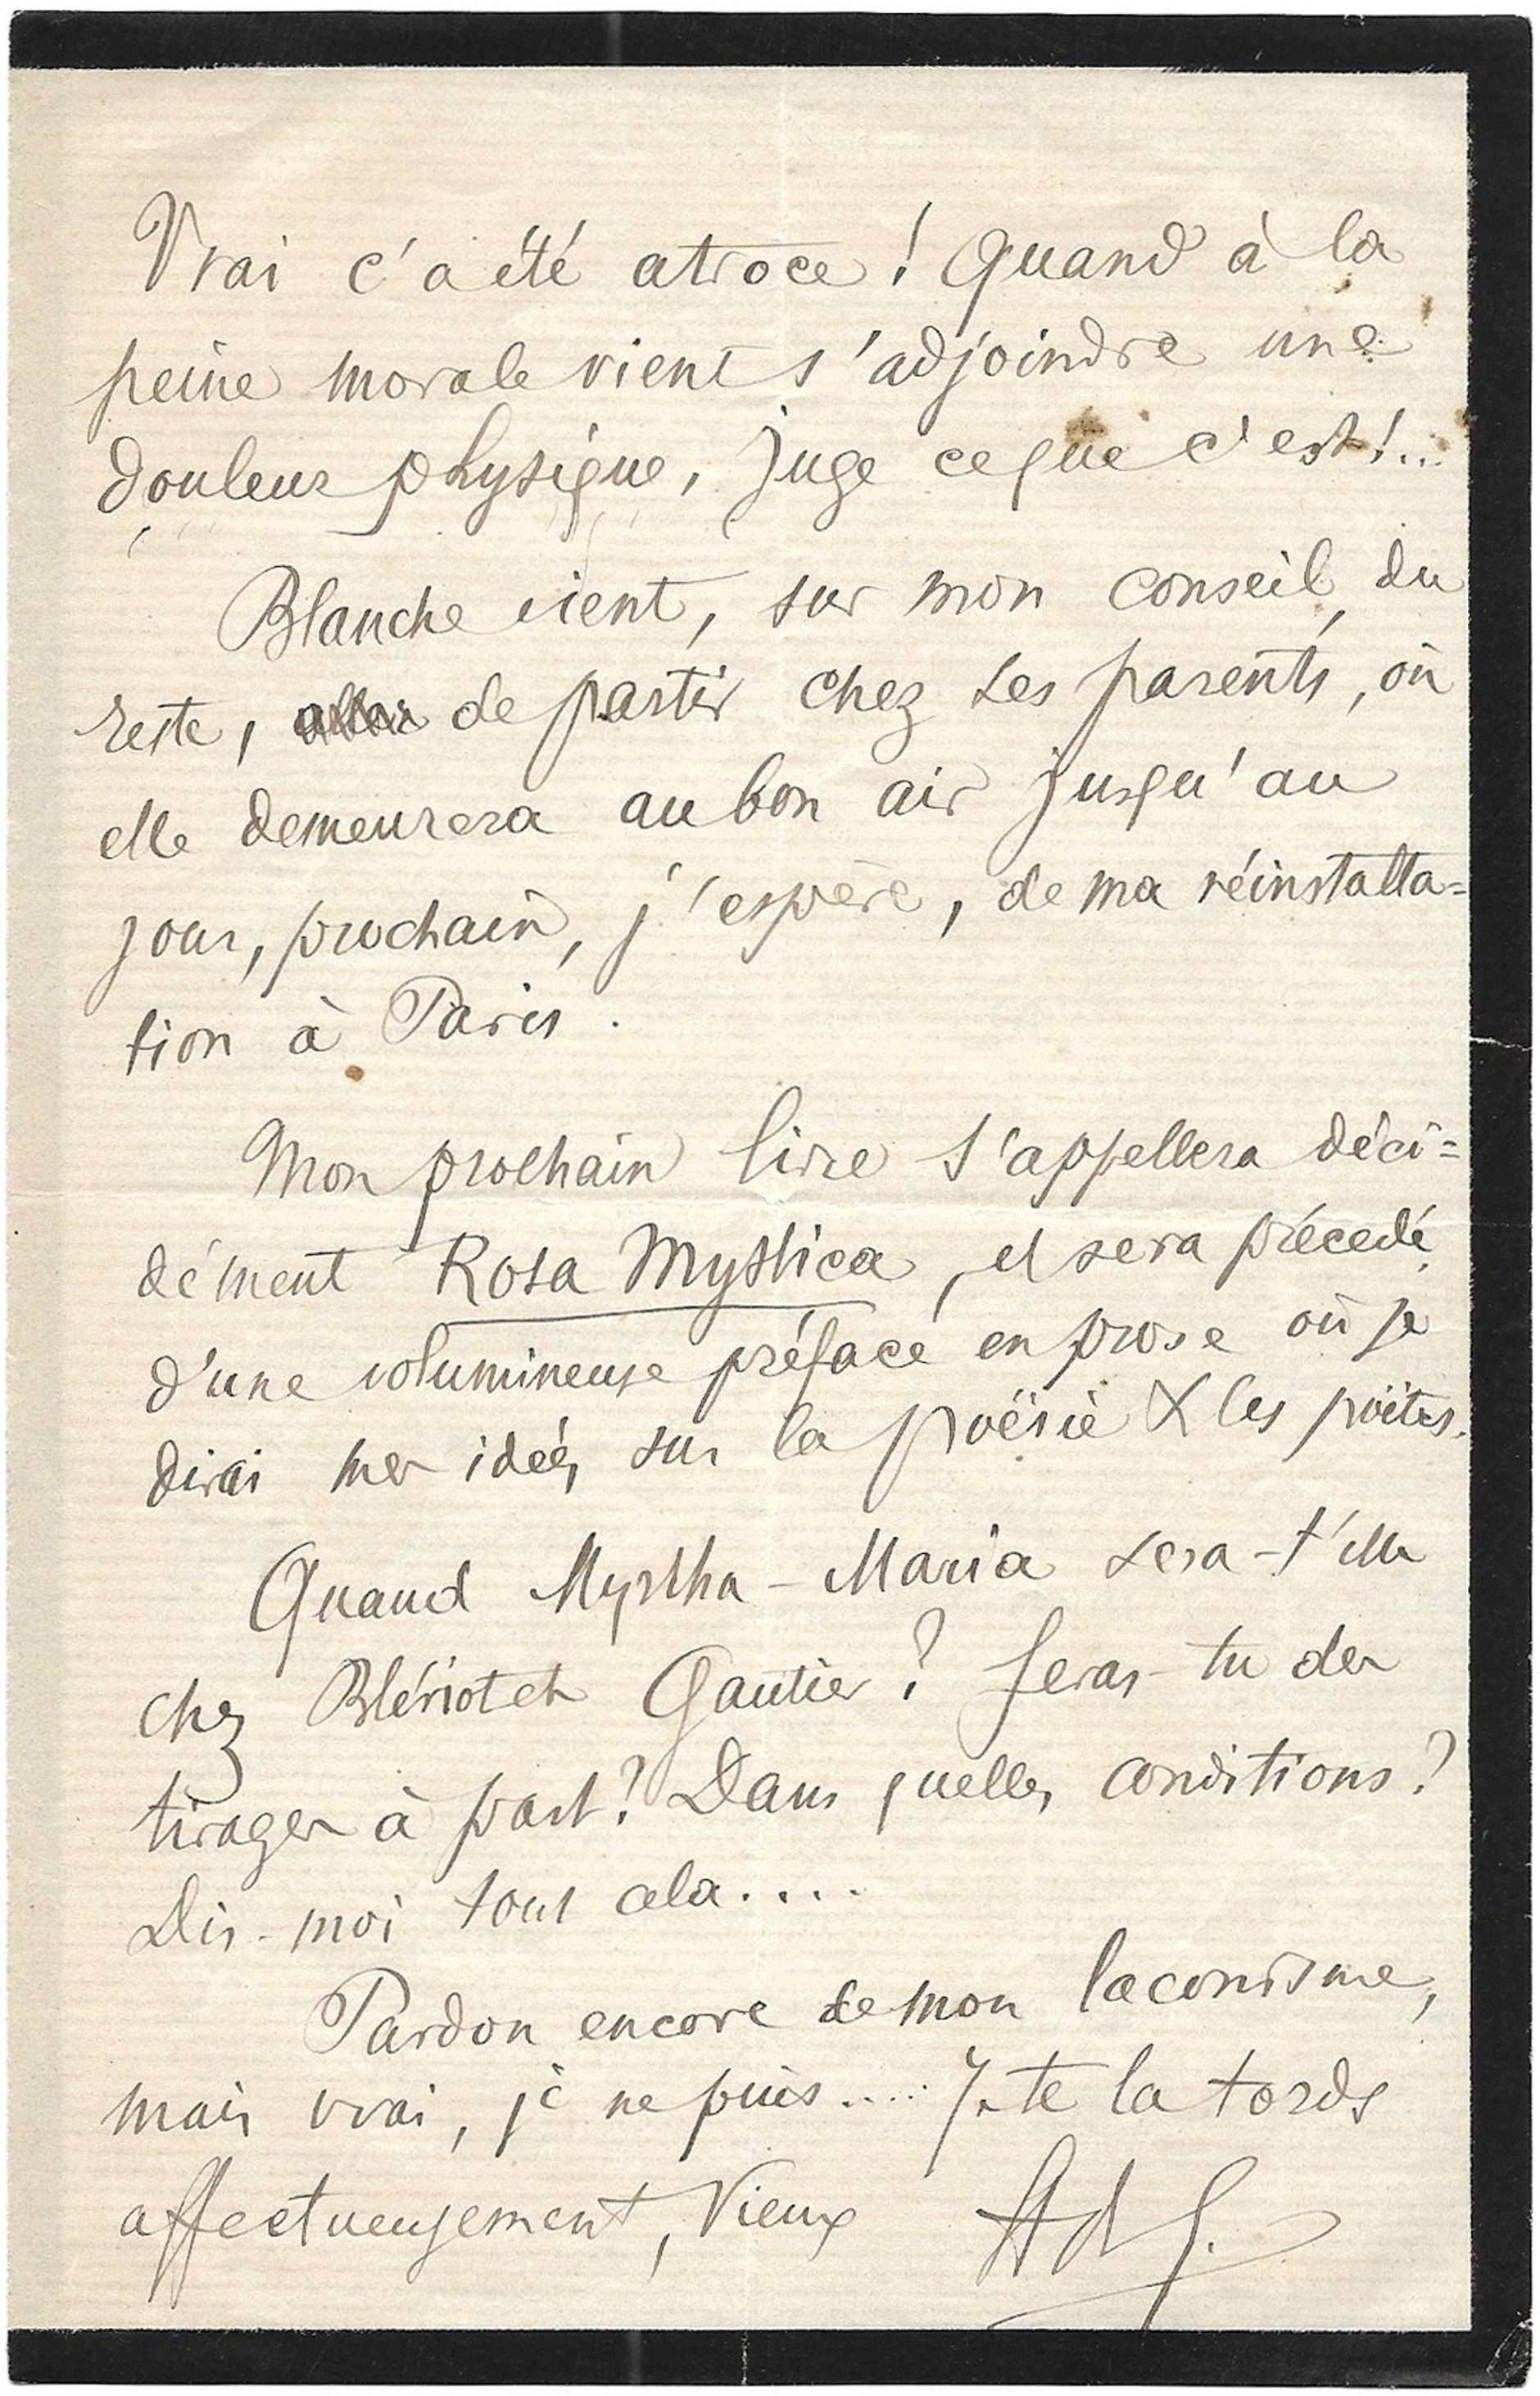 Vrai c'a été atroce ! Quand à la
peine morale vient s'adjoindre une
douleur physique, juge ce que c'est !...
Blanche vient, sur mon conseil, du
reste, de partir chez ses parents, où
elle demeurera au bon air jusqu'au
jour, prochain, j'espère, de ma réinstalla=
tion à Paris.
Mon prochain livre s'appellera déci=
dément Rosa Mystica, et sera précédé
d'une volumineuse préface en prose où je
dirai mes idées sur la poësie & les poëtes.
Quand Myrtha-Maria sera-t'elle
chez Blériot et Gautier ? Feras-tu des
tirages à part ? Dans quelles conditions ?
Dis-moi tout cela....
Pardon encore de mon laconisme,
mais vrai, je ne puis..... Je te la tords
affectueusement, Vieux